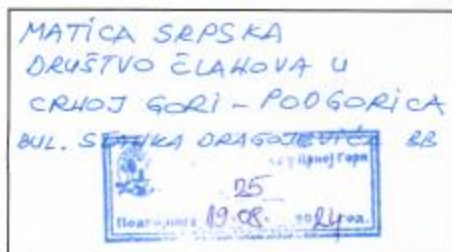 MATICA SRPSKA
DRUŠTVO ČLANOVA U
CRNOJ GORI - PODGORICA
BUL. STANKA DRAGOJEVIĆA BB
у Црној Гори
25
Подгорица 19.08. 2024 год.